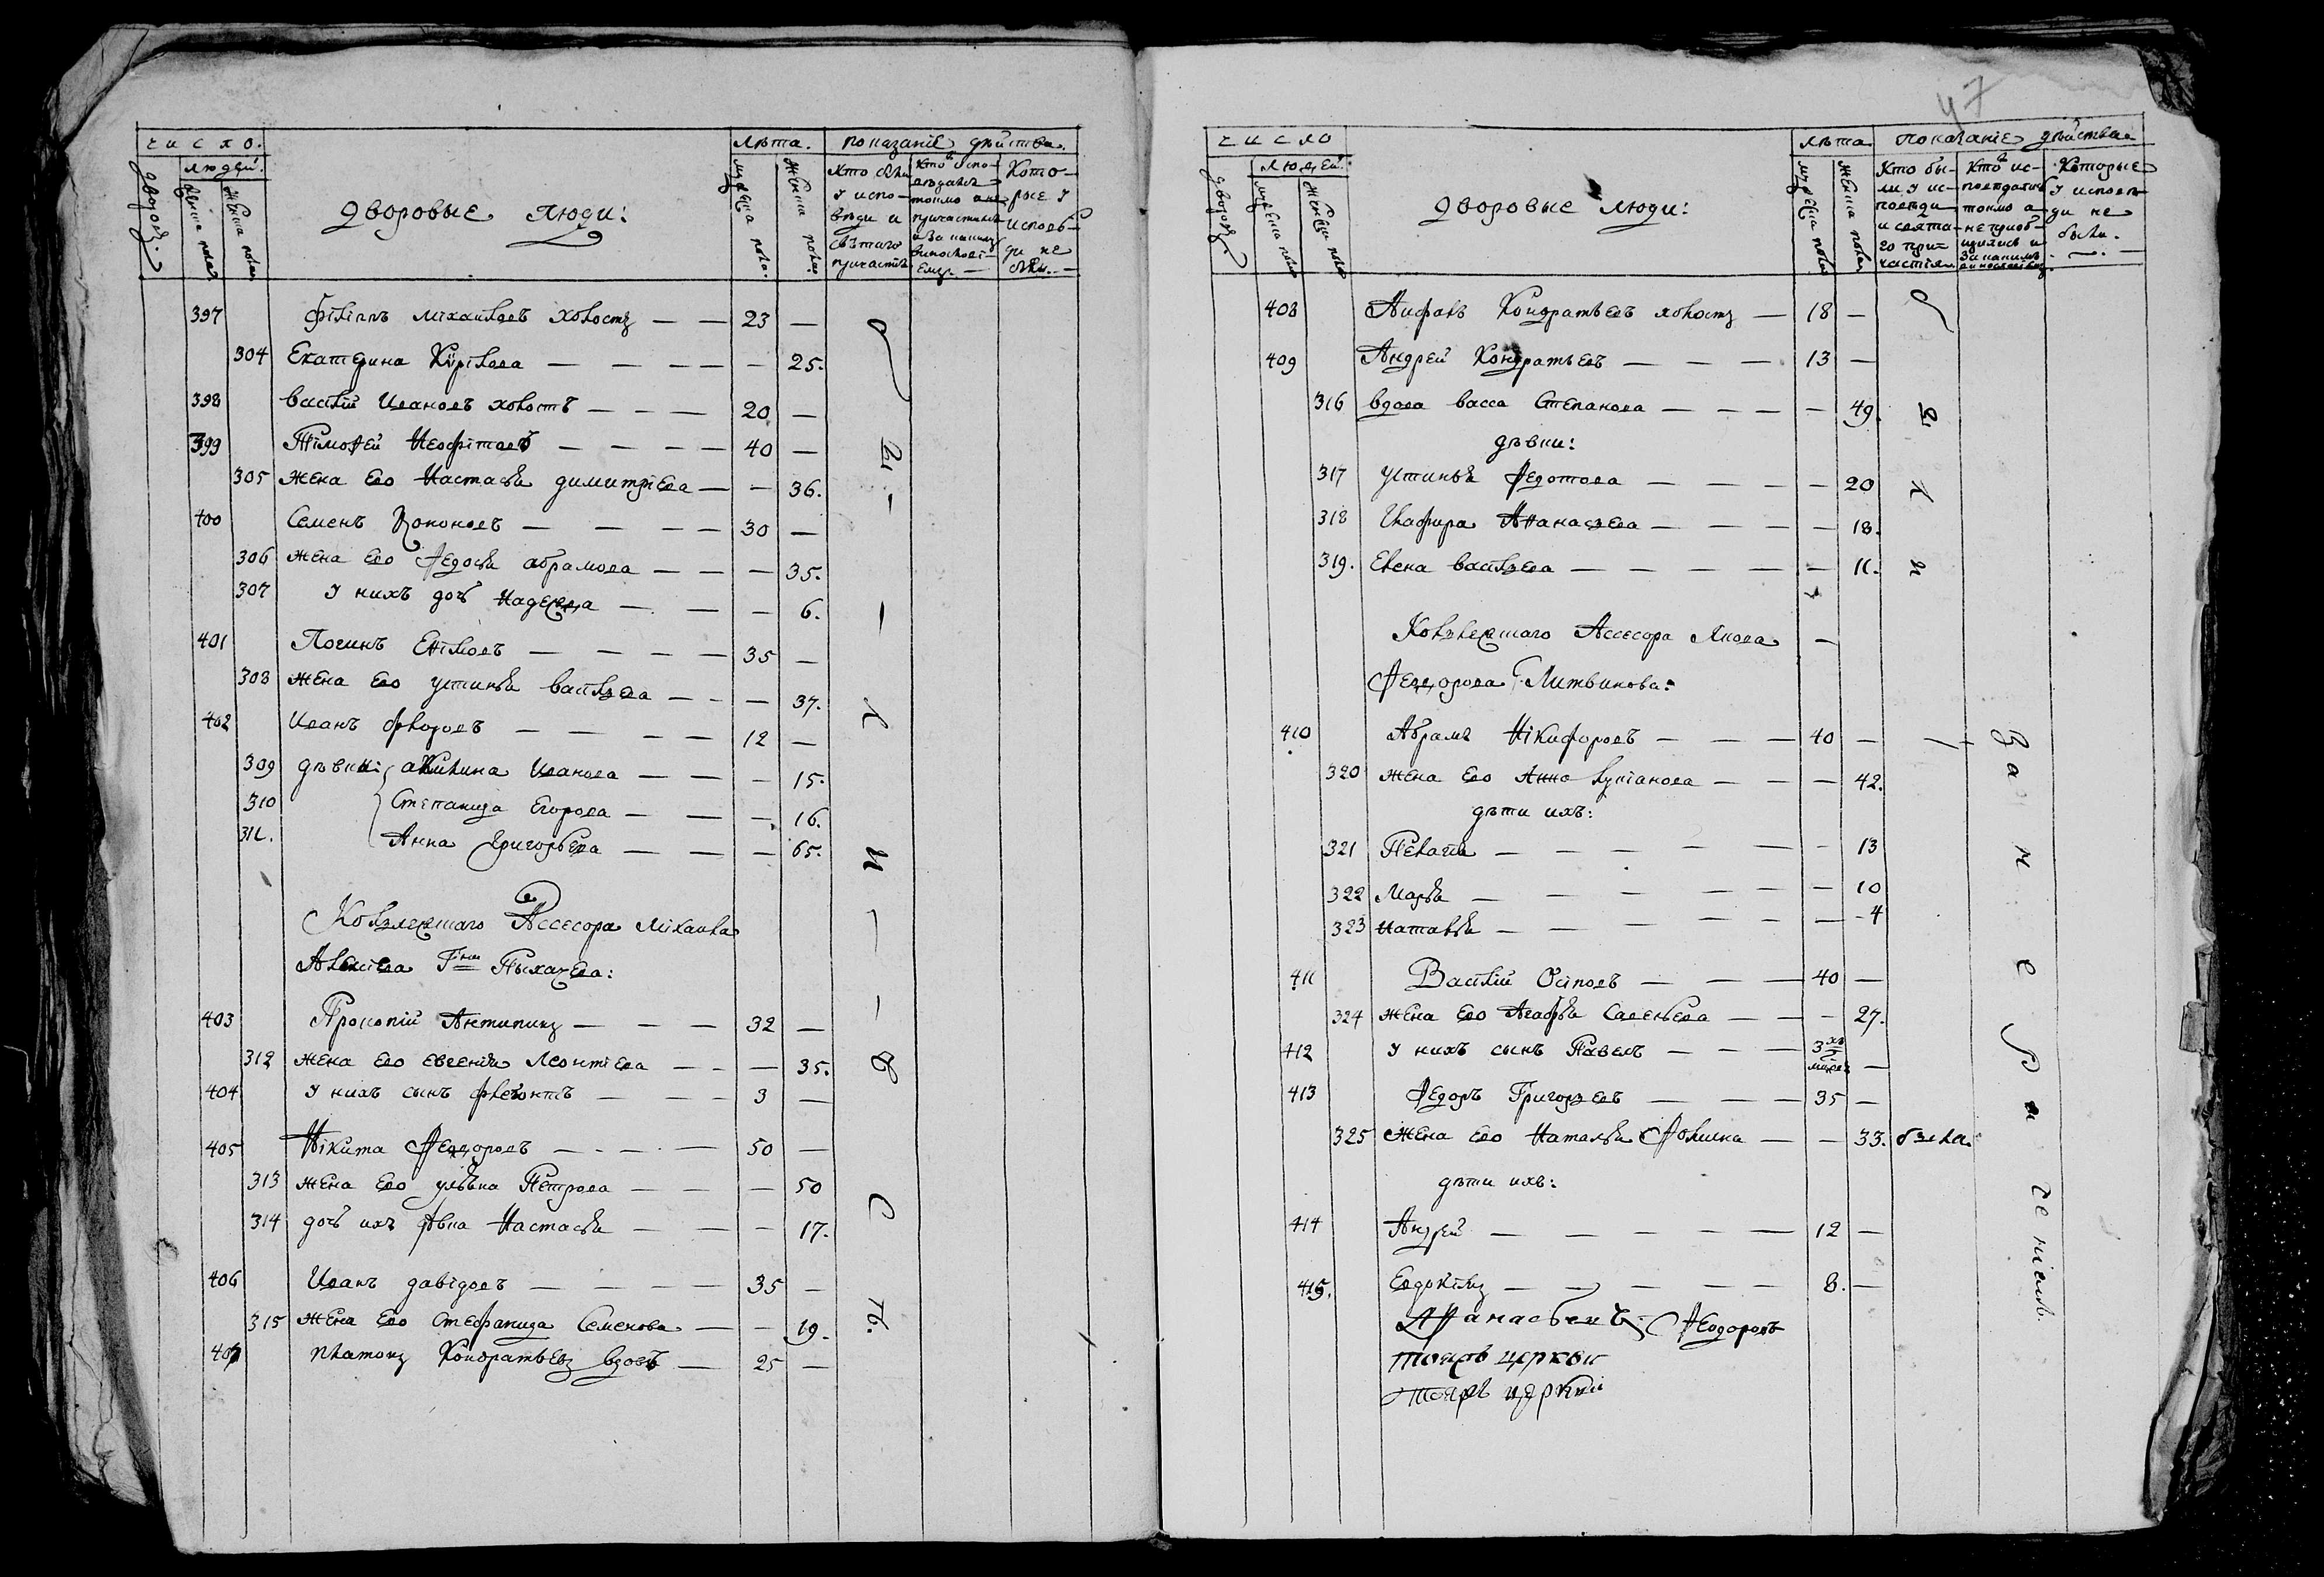 число.
людей.
дворовъ.
мужеска пола
женска пола
Дворовые люди:
лѣта.
мужеска пола.
женска пола.
показаніе дѣйства.
Кто были у исповѣди и святаго причастія
Кто исповѣдался токмо а не причастился и за какимъ винословіемъ
Которые у исповѣди не были.
397 Філіппъ Міхаиловъ холостъ — — 23 —
304 Екатерина Курілова — — — — 25.
398 Васілій Ивановъ холостъ — — — 20 —
399 Тімофей Неофітовъ — — — — 40 —
305 жена его Настасья Димитріева — — 36.
400 Семенъ Кононовъ — — — — 30 —
306 жена его Федосья Абрамова — — — 35.
307 у нихъ дочь Надежда — — — 6.
401 Логинъ — — — — 35 —
308 жена его Устинья Васільева — — — 37.
402 Иванъ Фролоъ — — — — 12 —
309 дѣвки: Акилина Иванова — — — 15.
310 Степанида Егорова — — — 16.
311. Анна Григорьева — — — 65.
были
Коллежскаго Ассесора Міхаила
Алексіева Гна Пыхачева:
403 Прокопій Антипинъ — — — 32 —
312 жена его Евгенія Леонтіева — — — 35.
404 у нихъ сынъ Флегонтъ — — — 3 —
405 Нікита Феодоровъ — — — 50 —
313 жена его Ульяна Петрова — — — 50
314 дочь ихъ дѣвка Настасья — — — 17.
406 Иванъ Давідовъ — — — — 35 —
315 жена его Стефанида Семенова — — 19.
407 Платонъ Кондратьевъ вдовъ — 25 —
47
число
людей.
дворовъ.
мужеска пола
женска пола
Дворовые люди:
лѣта
мужеска пола
женска пола
показаніе дѣйства
Кто были у исповѣди и святаго причастія
Кто исповѣдался токмо а не пріобщился и за какимъ винословіемъ.
Которые у исповѣди не были.
408 Кондратьевъ холостъ — 18 —
409 Андрей Кондратьевъ — — — 13 —
316 вдова Васса Степанова — — — — 49.
дѣвки:
317 Устинья Федотова — — — — 20
318 Афанасьева — — — 18.
319. Елена Васільева — — — — — 11.
были
Коллежскаго Ассесора Якова —
Феодорова Г. Литвинова:
410 Абрамъ Нікифоровъ — — — 40 —
320 жена его Анна — — — 42.
дѣти ихъ:
321 Пелагія — — — — — — 13
322 Марья — — — — — — 10
323 Наталья — — — — — — 4
411 Васілій Осіповъ — — — 40 —
324 жена его Агафья Савельева — — — 27.
412 у нихъ сынъ Павелъ — — — 3хъ —
413 Федоръ Григорьевъ — — — 35 —
325 жена его Наталья Фокина — — 33. была
дѣти ихъ:
414 Андрей — — — — — — 12 —
415. Евдокімъ — — — — — 8. —
за нераченіемъ.
Афанасьевъ Феодоровъ
тояръ церкви
тояръ церкви